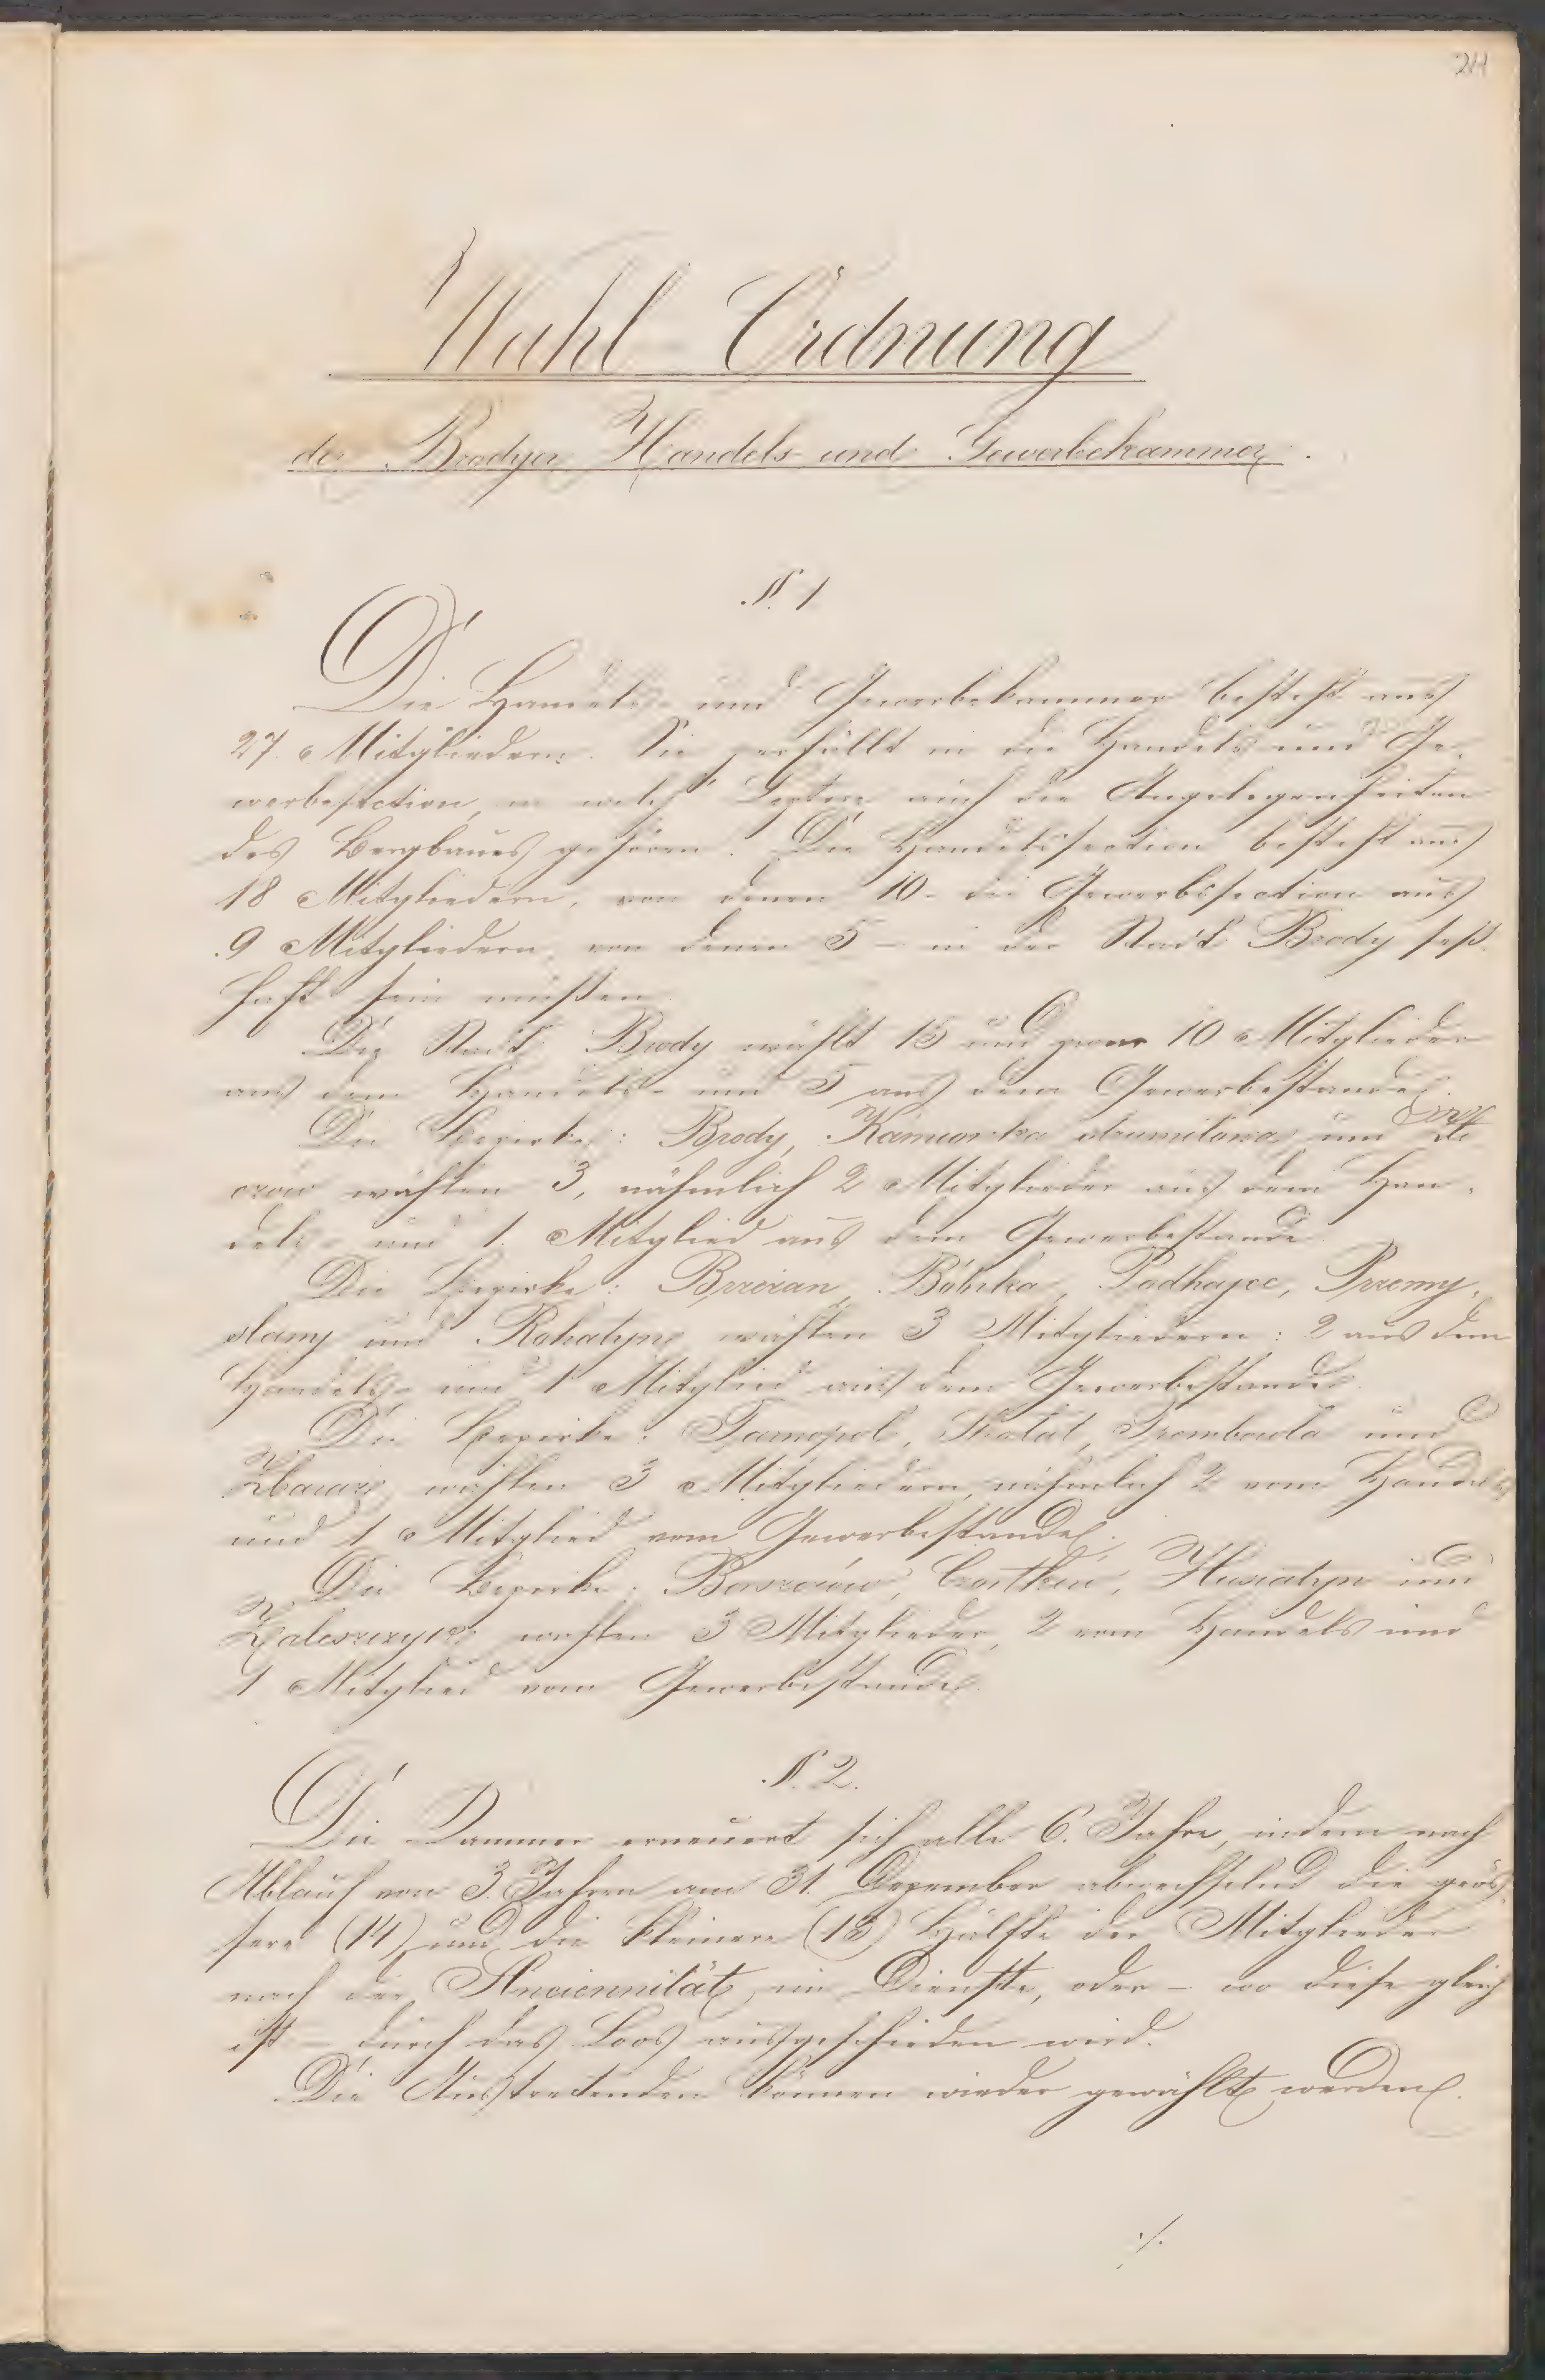 24
Wahl-Ordnung
der Brodyer Handels- und Gewerbekammer.
§. 1
Die Handels- und Gewerbekammer besteht aus
27. Mitgliedern. Sie zerfällt in die Handels und Ge-
werbesection, in welch' Leztere auch die Angelegenheiten
des Bergbaues gehören. Die Handelssection besteht aus
18 Mitgliedern, von denen 10 - die Gewerbssection aus
9 Mitgliedern, von denen 5 - in der Stadt Brody seß-
haft sein müssen.
Die Stadt Brody wählt 15 und zwar 10 Mitglieder
aus dem Handels- und 5 aus dem Gewerbestande.
Die Bezirke: Brody, Kamionka strumilowa und Zło
czow wählen 3, nähmlich 2 Mitglieder aus dem Han-
dels- und 1. Mitglied aus dem Gewerbestande.
Die Bezirke: Brzezan, Bóbrka, Podhajce, Przemy-
slany und Rohatyn wählen 3 Mitgliedern: 2 aus dem
Handels- und 1 Mitglied aus dem Gewerbestande.
Die Bezirke: Tarnopol, Skalat, Trembowla und
Zbaraz wählen 3 Mitgliedern, nähmlich 2 vom Handels
und 1 Mitglied vom Gewerbestande.
Die Bezirke: Borszczów, Czortków, Husiatyn und
Zaleszczyce wählen 3 Mitglieder, 2 vom Handels und
1 Mitglied vom Gewerbestande.
§. 2.
Die Kammer erneuert sich alle 6. Jahre, indem nach
Ablauf von 3. Jahren am 31. Dezember abwechselnd die grös-
sere (14) und die kleinere (13) Hälfte der Mitglieder
nach der Anciennität im Dienste, oder - wo diese gleich
ist - durch das Loos ausgeschieden wird.
Die Austretenden können wieder gewählt werden.
./.